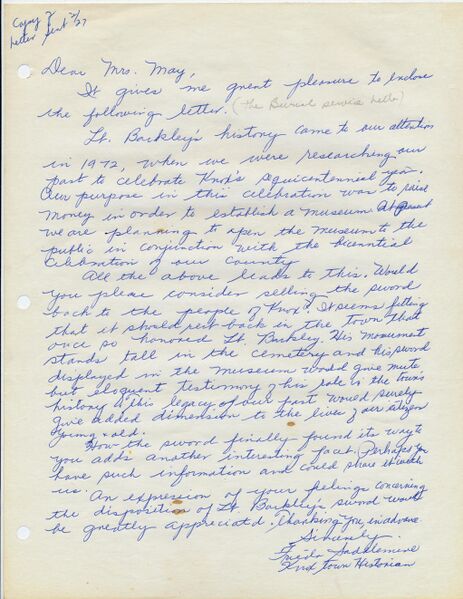 Copy of
letter sent 2/27
Dear Mrs. May,
It gives me great pleasure to enclose
the following letter. (The Burial service letter)
Lt. Barkley's history came to our attention
in 1972, when we were researching our
past to celebrate Knox's sequicentennial year.
Our purpose in this celebration was to raise
money in order to establish a museum. At present
we are planning to open the museum to the
public in conjunction with the bicentinial
celebration of our county
All the above leads to this. Would
you please consider selling the sword
back to the people of Knox? It seems fitting
that it should rest back in the town that
once so honored Lt. Barkley. His monument
stands tall in the cemetery and his sword
displayed in the museum would give mute,
but eloquent testimony of his role in the town's
history & this legacy of our past would surely
give added dimension to the lives of our citizen
young & old.
How the sword finally found its way to
you adds another interesting facet. Perhaps you
have such information and could share it with
us. An expression of your feelings concerning
the disposition of Lt. Barkley's sword would
be greatly appreciated. Thanking you, in advance.
Sincerely,
Frieda Saddlemire
Knox Town Historian